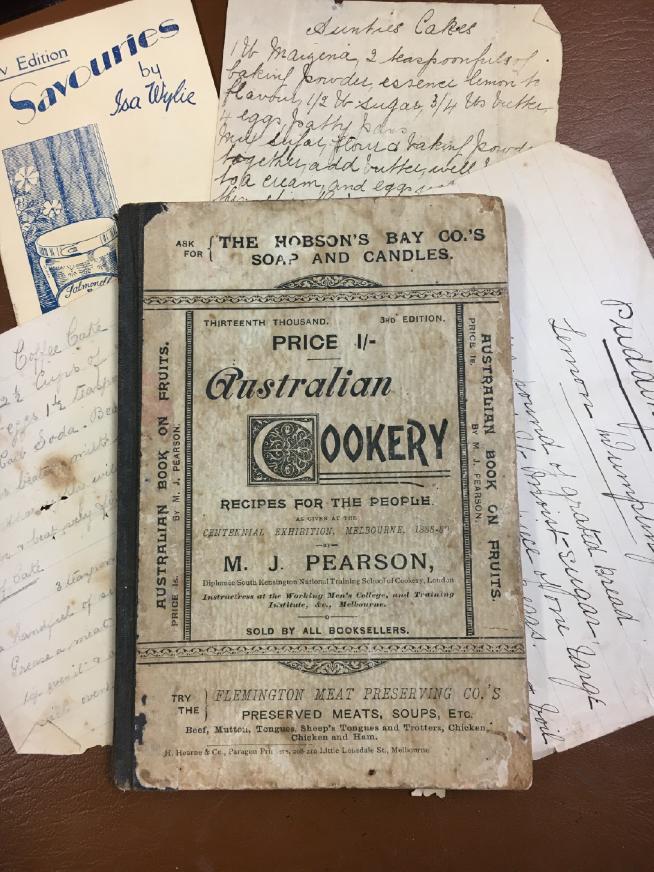 v Edition
Savouries
by
Isa Wylie
Aunties Cakes
1 lb Maizena, 2 teaspoonfuls of
baking powder, essence lemon to
flavour, 1/2 lb sugar, 3/4 lbs butter
4 eggs, patty pans
sugar, flour & baking powd
together, add butter, well
to a cream, and eggs
ASK FOR { THE HOBSON'S BAY CO.'S
SOAP AND CANDLES.
THIRTEENTH THOUSAND. 3RD EDITION.
PRICE 1/-
Australian
COOKERY
RECIPES FOR THE PEOPLE.
AS GIVEN AT THE
CENTENNIAL EXHIBITION, MELBOURNE, 1888-89
BY
M. J. PEARSON,
Diplomée South Kensington National Training School of Cookery, London
Instructress at the Working Men's College, and Training
Institute, &c., Melbourne.
SOLD BY ALL BOOKSELLERS.
AUSTRALIAN BOOK ON FRUITS.
PRICE 1s. BY M. J. PEARSON.
AUSTRALIAN BOOK ON FRUITS.
PRICE 1s. BY M. J. PEARSON.
TRY THE } FLEMINGTON MEAT PRESERVING CO.'S
PRESERVED MEATS, SOUPS, ETC.
Beef, Mutton, Tongues, Sheep's Tongues and Trotters, Chicken,
Chicken and Ham.
H. Hearne & Co., Paragon Printers, 208-210 Little Lonsdale St., Melbourne
Coffee Cake
2½ Cups of
eggs 1½
Carb Soda
milk
Cake
handful of
Grease a meat
Lemon Dumpling
pound of grated bread
moist sugar
eggs.